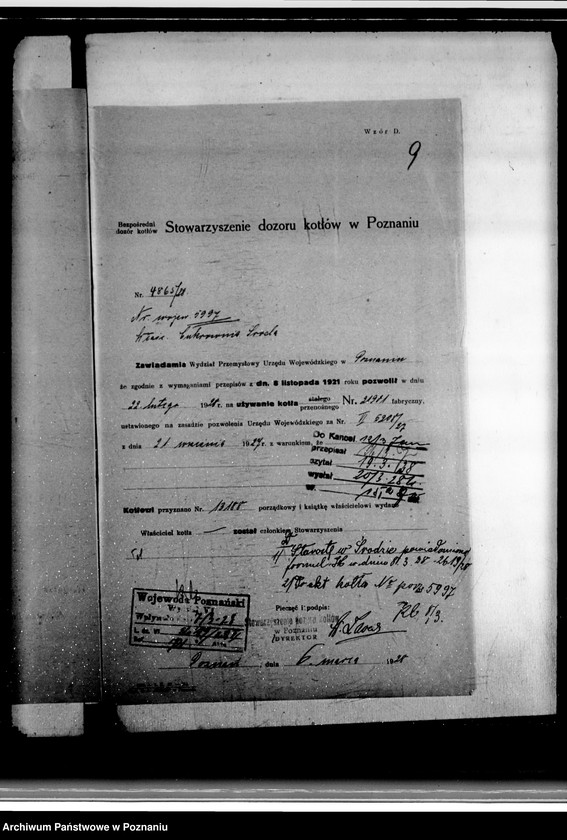 Wzór D.
9
Bezpośredni
dozór kotłów
Stowarzyszenie dozoru kotłów w Poznaniu
Nr. 4865/28.
Nr. wojew. 5997
Cukrownia Środa
Zawiadamia Wydział Przemysłowy Urzędu Wojewódzkiego w Poznaniu
że zgodnie z wymaganiami przepisów z dn. 8 listopada 1921 roku pozwolił w dniu
22 lutego 1928 r. na używanie kotła stałego przenośnego Nr. 21911 fabryczny,
ustawionego na zasadzie pozwolenia Urzędu Wojewódzkiego za Nr. II 5201/27
z dnia 21 września 1927 r. z warunkiem, że
Do Kancel. 12/3
przepisał
czytał 19.3./28
wysłał 20/3.28
Kotłowi przyznano Nr. 12188 porządkowy i książkę właścicielowi wydano
Właściciel kotła — został członkiem Stowarzyszenia
1/ Starostę w Środzie powiadomiono
formul. w dniu 8.3.28
2/ akt kotła Nr. 5997
Pieczęć i podpis:
Stowarzyszenie dozoru kotłów
w Poznaniu
DYREKTOR
8/3.
Województwo Poznański
Wpłynęło 7/3-28
Poznań, dnia 6. marca 1928
Archiwum Państwowe w Poznaniu